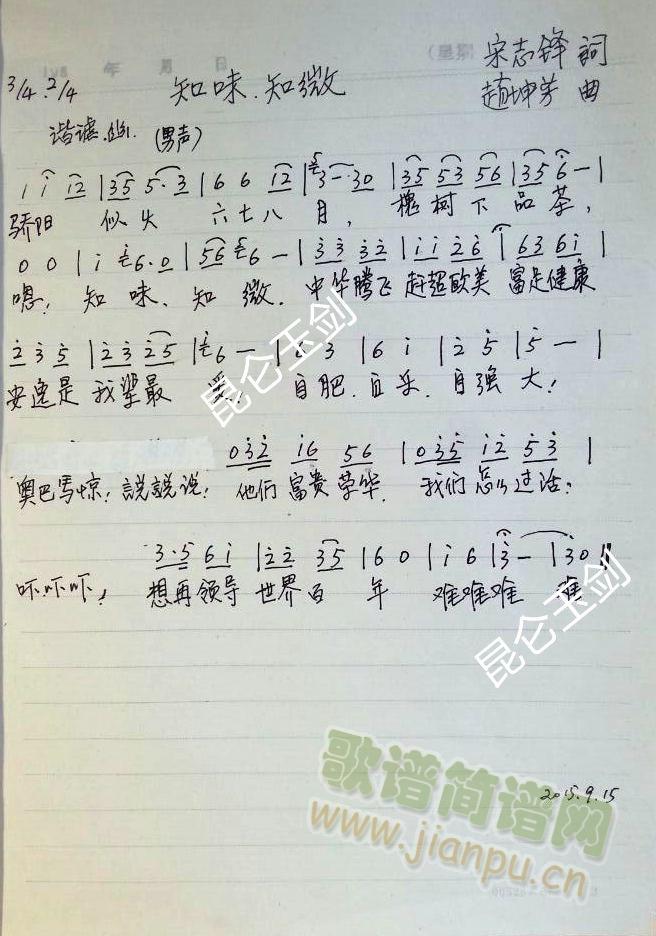 年 月 日 (星期
宋志锋 詞
3/4 2/4 知味.知微
趙坤芳 曲
谐谑. (男声)
1 i i2 |35 5·3 |6 6 i2 |3-·30 |35 53 56 |35 6 - |
骄阳 似火 六七八 月, 槐树下 品茶,
0 0 | i 6·0 |56 6 - |3 3 32 |i i 26 | 63 6i |
嗯! 知 味、知 微. 中华腾飞 赶超欧美 富足健康
2 3 5 |23 25 |6 - |6 3 |6 i |2 5 |5 - |
安逸是 我辈最 爱! 自肥.自乐.自强 大!
032 i6 56 |035 i2 53 |
奥巴马惊! 説説说! 他们 富贵 荣华. 我们 怎么过活?
3·5 6i |22 35 |6 0 |i 6 |3 - |30 ||
吓吓吓! 想再领导 世界百 年 难难难 难
昆仑玉剑
昆仑玉剑
2015.9.15
歌谱简谱网
www.jianpu.cn